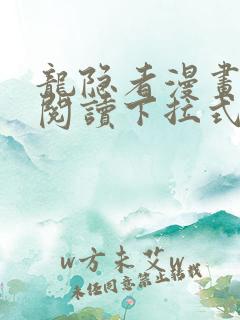 龍隐者漫畫
閱讀下拉式
w方未艾w
未经同意禁止转载